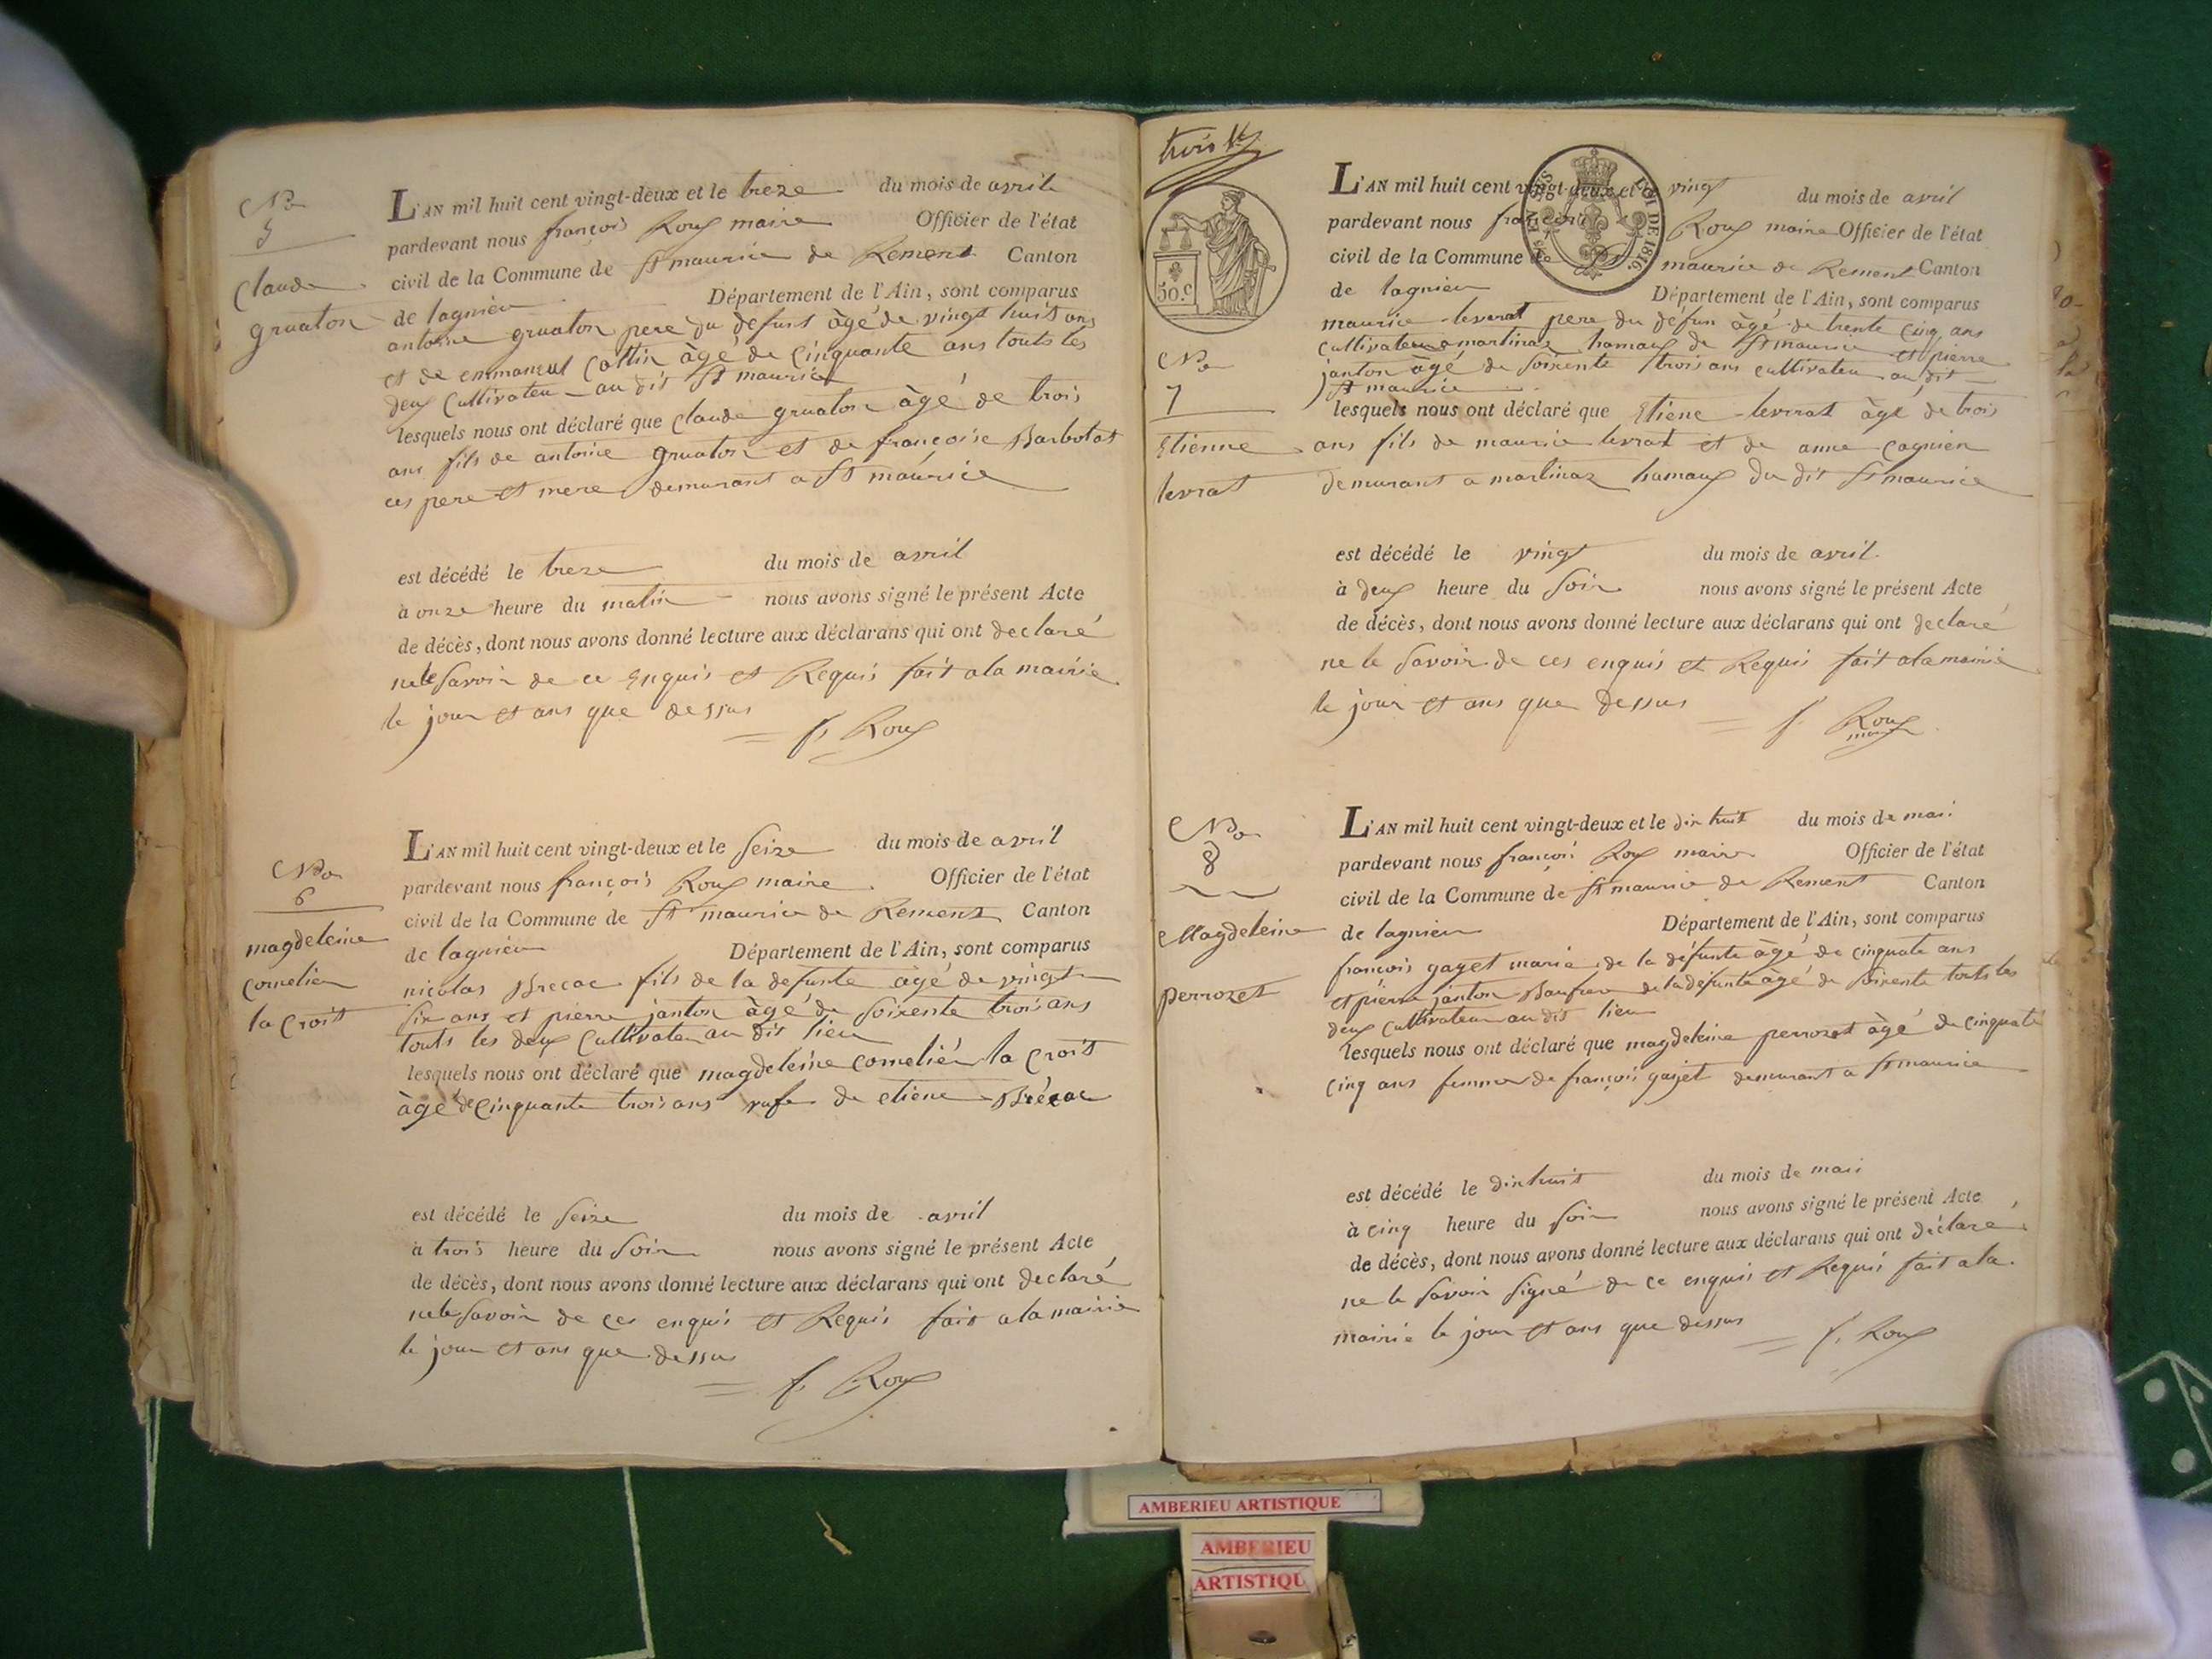 No
5
Claude
gruaton
L'AN mil huit cent vingt-deux et le treze du mois de avril
pardevant nous françois Roux maire Officier de l'état
civil de la Commune de St maurice de Remens Canton
de lagnieu Département de l'Ain, sont comparus
antoine gruaton pere du defunt âgé de vingt huit ans
et de emmanuel Cottin âgé de Cinquante ans touts les
deux Cultivateur au dit St maurice
lesquels nous ont déclaré que Claude gruaton âgé de trois
ans fils de antoine gruaton et de françoise Barbotat
ces pere et mere demurant a St maurice
est décédé le treze du mois de avril
à onze heure du matin nous avons signé le présent Acte
de décès, dont nous avons donné lecture aux déclarans qui ont declaré
ne le Savoir de ce Enquis et Requis fait a la mairie
le jour et ans que dessus
f. Roux
No
6
magdeleine
cornelien
la Croit
L'AN mil huit cent vingt-deux et le Seize du mois de avril
pardevant nous françois Roux maire Officier de l'état
civil de la Commune de St maurice de Remens Canton
de lagnieu Département de l'Ain, sont comparus
nicolas Brecac fils de la defunte âgé de vingt
Six ans et pierre janton âgé de Soixente trois ans
touts les deux Cultivateur au dit lieu
lesquels nous ont déclaré que magdeleine cornelién la Croit
âgé de Cinquante trois ans vefe de etiene Brécac
est décédé le Seize du mois de avril
à trois heure du Soir nous avons signé le présent Acte
de décès, dont nous avons donné lecture aux déclarans qui ont declaré
ne le Savoir de ces enquis et Requis fait a la mairie
le jour et ans que dessus
f. Roux
trois
50.c
EN SUS LOI DE 1816.
No
7
Etienne
levrat
L'AN mil huit cent vingt-deux et le vingt du mois de avril
pardevant nous françois Roux maire Officier de l'état
civil de la Commune de St maurice de Remens Canton
de lagnieu Département de l'Ain, sont comparus
maurice levrat pere du défun âgé de trente Cinq ans
Cultivateur a martinaz hamaux de St maurice et pierre
janton âgé de Soixente trois ans cultivateur au dit
St maurice
lesquels nous ont déclaré que Etiene levrat âgé de trois
ans fils de maurice levrat et de anne Cagnien
demurant a martinaz hamaux du dit St maurice
est décédé le vingt du mois de avril.
à deux heure du Soir nous avons signé le présent Acte
de décès, dont nous avons donné lecture aux déclarans qui ont declaré
ne le Savoir de ces enquis et Requis fait a la mairie
le jour et ans que dessus
f. Roux
maire
No
8
Magdeleine
perrozet
L'AN mil huit cent vingt-deux et le dix huit du mois de mai
pardevant nous françois Roux maire Officier de l'état
civil de la Commune de St maurice de Remens Canton
de lagnieu Département de l'Ain, sont comparus
françois gayet marie de la défunte âgé de cinquate ans
et pierre janton Baufrere de la defunte âgé de Soixente touts les
deux Cultivateur au dit lieu
lesquels nous ont déclaré que magdeleine perrozet âgé de cinquate
cinq ans femme de françois gayet demurant a St maurice
est décédé le dix huit du mois de mai
à cinq heure du Soir nous avons signé le présent Acte
de décès, dont nous avons donné lecture aux déclarans qui ont déclaré
ne le Savoir Signé de ce enquis et Requis fait a la
mairie le jour et ans que dessus
f. Roux
AMBERIEU ARTISTIQUE
AMBERIEU
ARTISTIQU